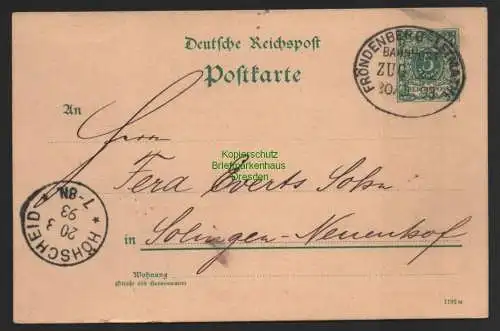 Deutsche Reichspost
Postkarte
FRÖNDENBERG-LETMATHE
BAHNPOST
ZUG
5
An
Herrn
Kopierschutz
Briefmarkenhaus
Dresden
Ferd Everts Sohn
in Solingen-Neuenhof
HÖHSCHEID
20
3
93
7-8N.
Wohnung
(Straße und Hausnummer)